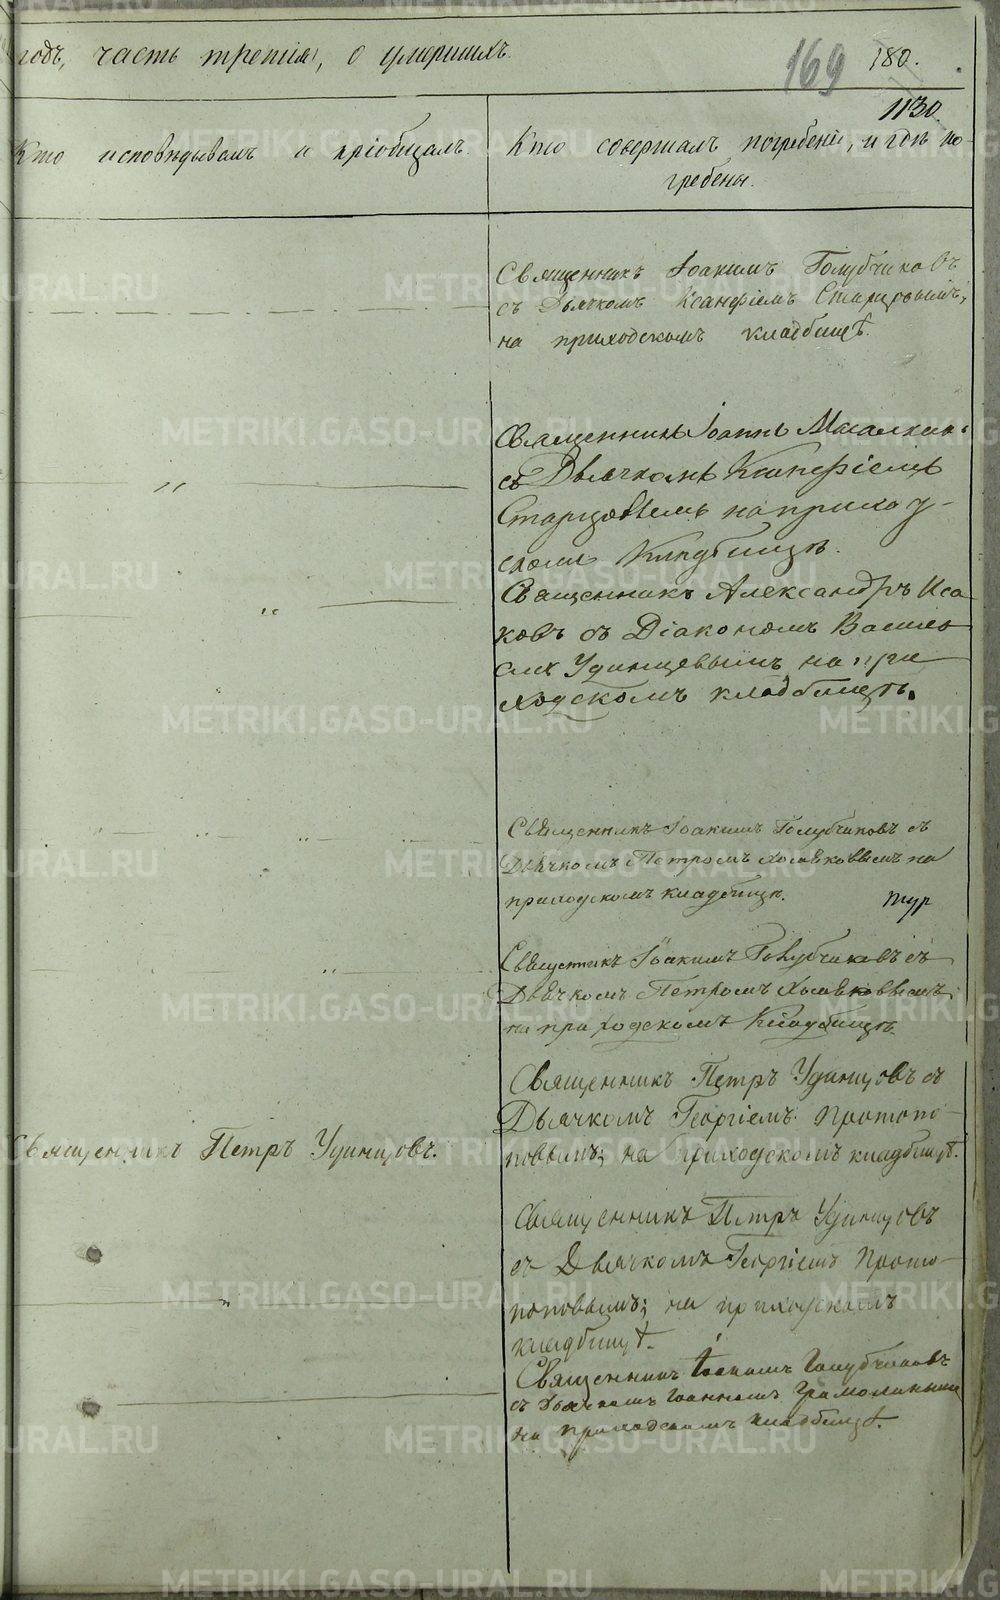 годъ, часть третія, о умершихъ.
169
180.
1130
Кто исповѣдывалъ и пріобщалъ.
Кто совершалъ погребеніе, и гдѣ по-
гребены.
Священникъ Іоакимъ Голубчиковъ
съ Дьячкомъ Ксанфіемъ Старцовымъ,
на приходскомъ кладбищѣ.
Священникъ Іоаннъ
съ Дьячкомъ Ксанфіемъ
Старцовымъ на приход-
скомъ Кладбищѣ.
Священникъ Александръ Иса
ковъ съ Діакономъ Василь
емъ Удинцевымъ на при
ходскомъ кладбищѣ.
Священникъ Іоакимъ Голубчиковъ съ
Дьячкомъ Петромъ Хомяковымъ на
приходскомъ кладбищѣ.
тур
Священникъ Іоакимъ Голубчиковъ съ
Дьячкомъ Петромъ Хомяковымъ
на приходскомъ Кладбищѣ
Священникъ Петръ Удинцовъ съ
Дьячкомъ Георгіемъ Протопо-
повымъ; на приходскомъ кладбищѣ.
Священникъ Петръ Удинцовъ.
Священникъ Петръ Удинцовъ
съ Дьячкомъ Георгіемъ Прото-
поповымъ; на приходскомъ
кладбищѣ.
Священникъ Іоакимъ Голубчиковъ
съ Дьячкомъ Іоанномъ
на приходскомъ кладбищѣ.
METRIKI.GASO-URAL.RU